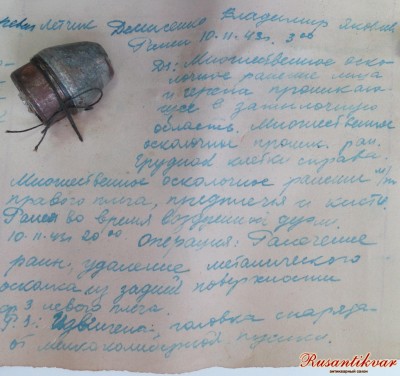 летчик Денисенко Владимир Яковл.
Ранен 10-11-43г. 3 00
Ds: Множественное оско-
лочное ранение лица
и черепа проникаю-
щее в затылочную
область. Множественное
осколочное проник. ран.
грудной клетки справа.
Множественное осколочное ранение м/т
правого плеча, предплечья и кисти.
Ранен во время воздушн. дуэли.
10-11-43 20 00 Операция: Рассечение
ран, удаление металического
осколка из задней поверхности
3 левого плеча.
Извлечена головка снаряда
от мелкокалиберной пушки.
Rusantikvar
антикварный салон